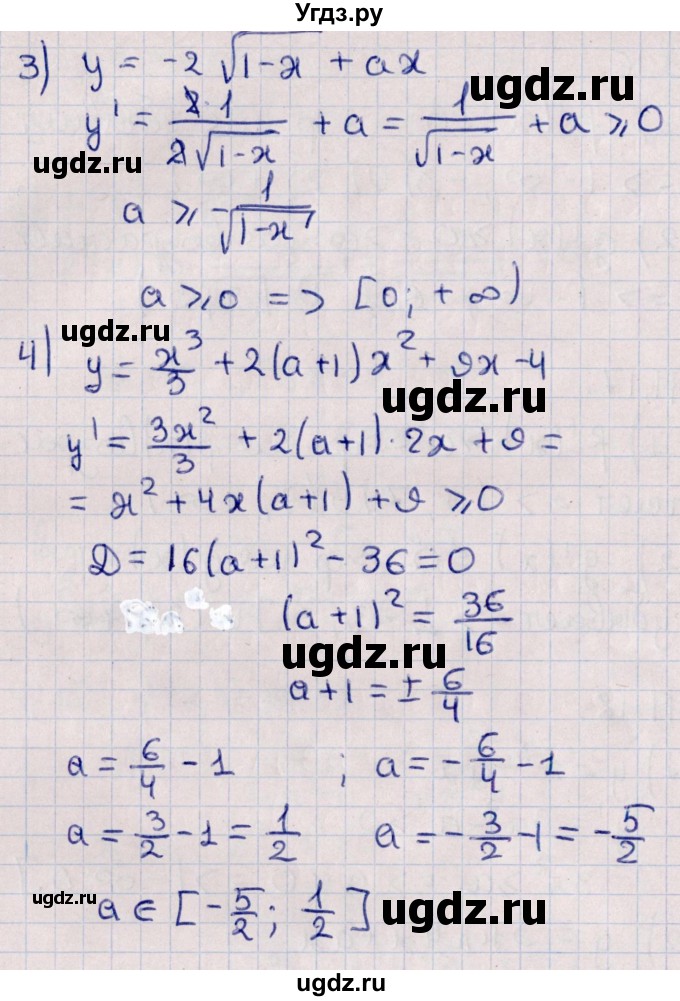 Угдз.ру
3) y = -2√(1-x) + ax
ugdz.ru
y' = 2·1/(2√(1-x)) + a = 1/√(1-x) + a ⩾ 0
ugdz.ru
ugdz.ru
a ⩾ -1/√(1-x)
a ⩾ 0 => [0; +∞)
ugdz.ru
4) y = x³/3 + 2(a+1)x² + 9x - 4
ugdz.ru
y' = 3x²/3 + 2(a+1)·2x + 9 =
= x² + 4x(a+1) + 9 ⩾ 0
D = 16(a+1)² - 36 = 0
(a+1)² = 36/16
ugdz.ru
a+1 = ± 6/4
a = 6/4 - 1 ; a = -6/4 - 1
a = 3/2 - 1 = 1/2 a = -3/2 - 1 = -5/2
ugdz.ru a ∈ [-5/2; 1/2] ugdz.ru
ugdz.ru